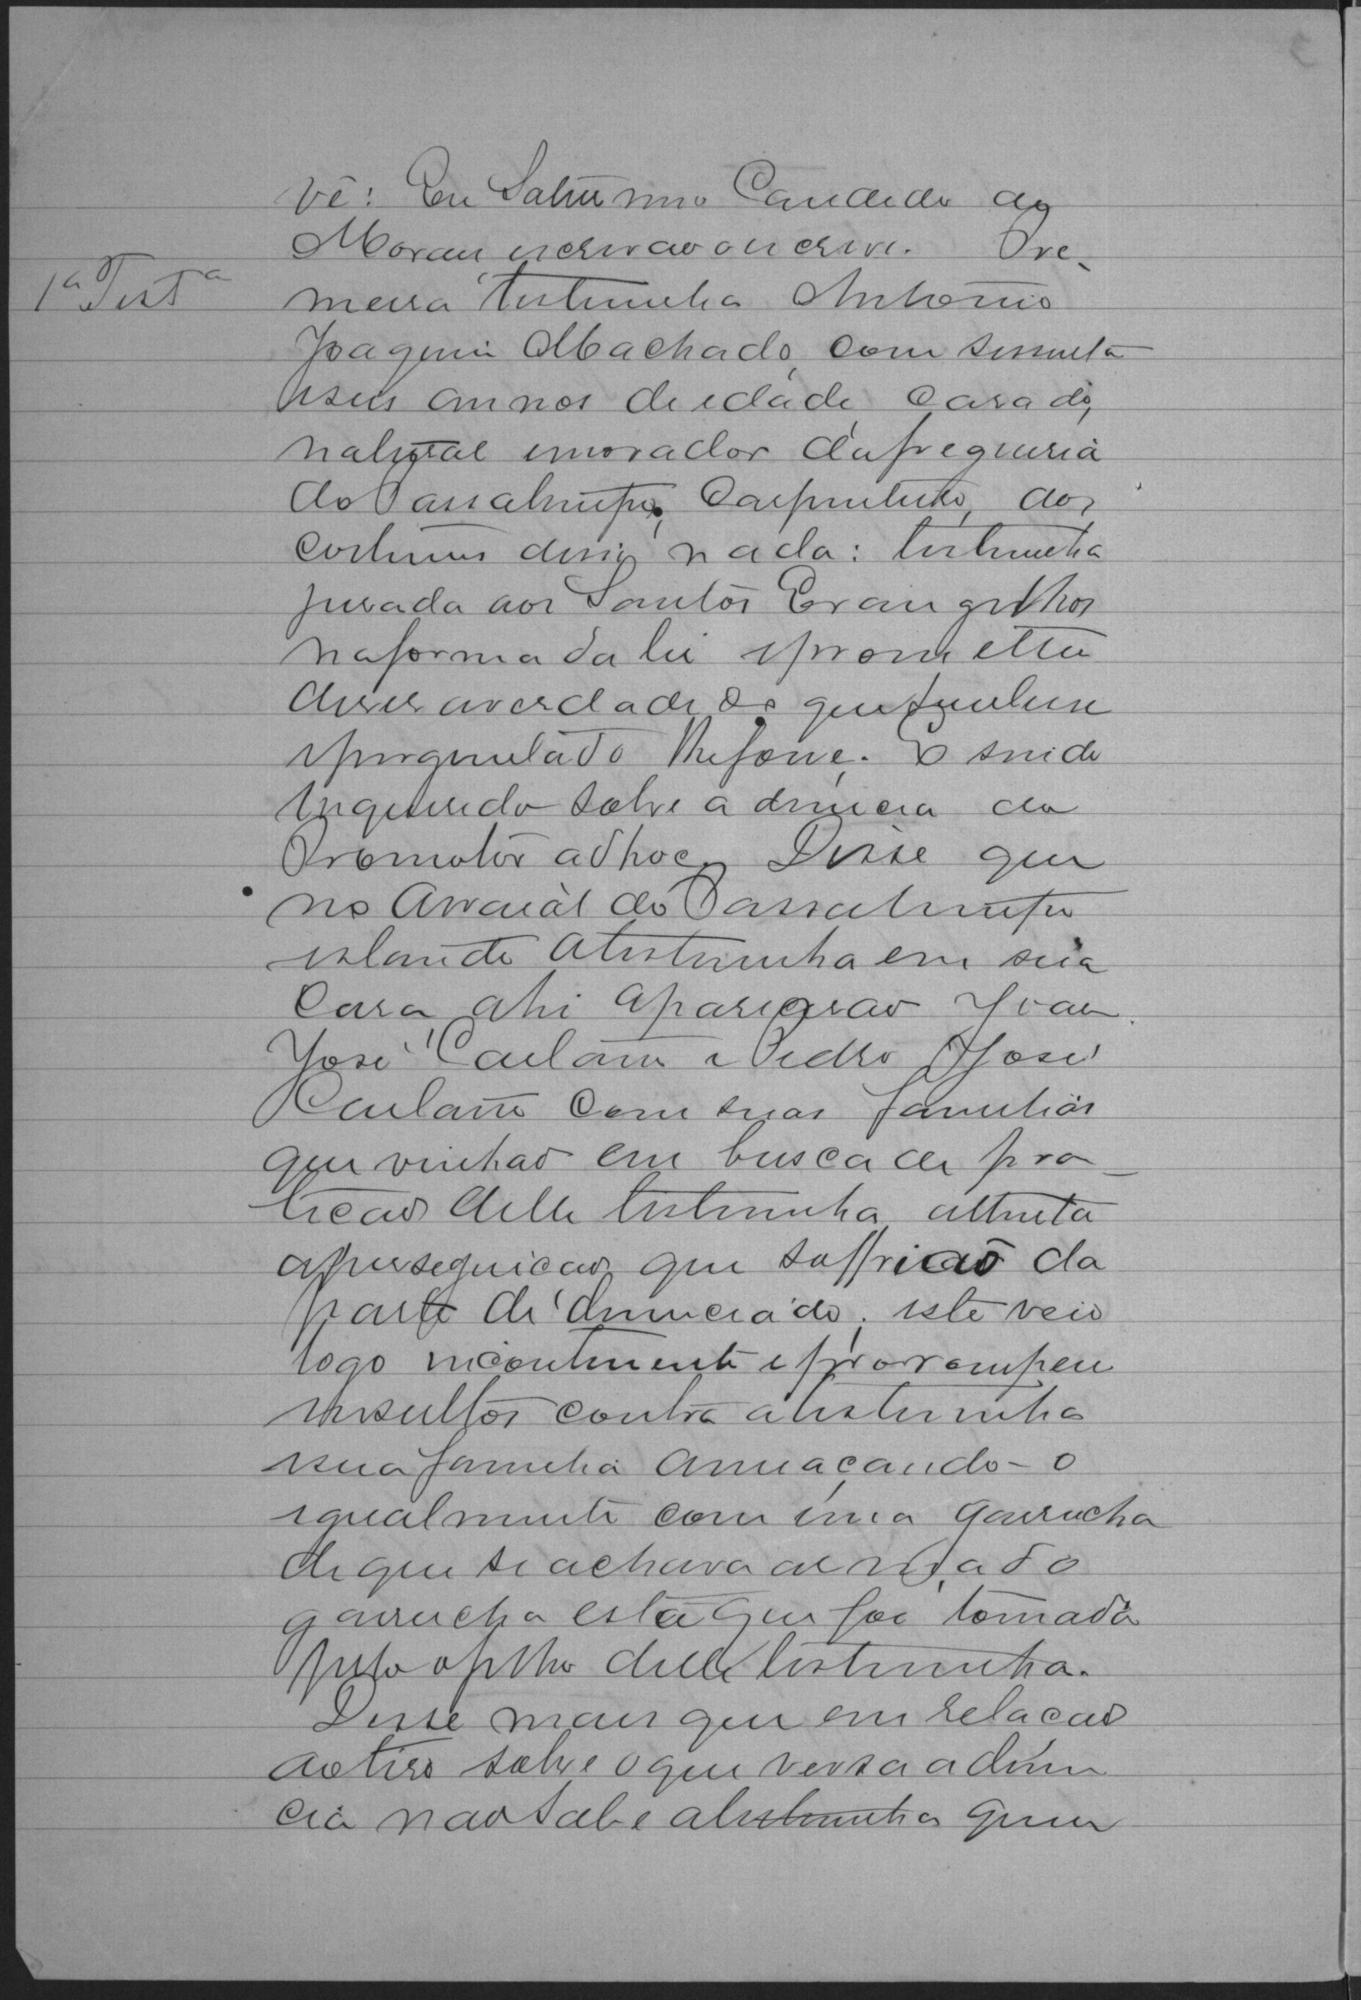 vê: Eu Saturnino Candido de
Moraes, escrivão o escrevi. Pre-
1ª Testª
meira testimunha Antonio
Joaquim Machado, com sessenta
eseis annos de edade, casado,
natural emorador dafreguesia
do Passatempo, Carpinteiro, dos
costumes disse nada: testimunha
jurada aos Santos Evangelhos
naforma da lei eprometteu
diser averdade do que soubesse
eperguntado lhefosse. E sendo
inquirido sobre a denuncia do
Promotor adhoc, Disse que
no Arraial do Passatempo
estando atestimunha em sua
casa, ahi aparecerão João
José Caetano e Pedro José
Caetano com suas familias
que vinhão em busca de pro-
tecão delle testimunha, attenta
aperseguicão que soffrião da
parte do denunciado; este veio
logo incontinente eprorrompeu
insultos contra atestimunha
esua familia ameaçando-o
igualmente com uma garrucha
de que se achava armado
garrucha esta que foi tomada
pelo ofilho delle testimunha.
Disse mais que em relacão
aotiro sobre oque versa a denun
cia não sabe atestimunha quem